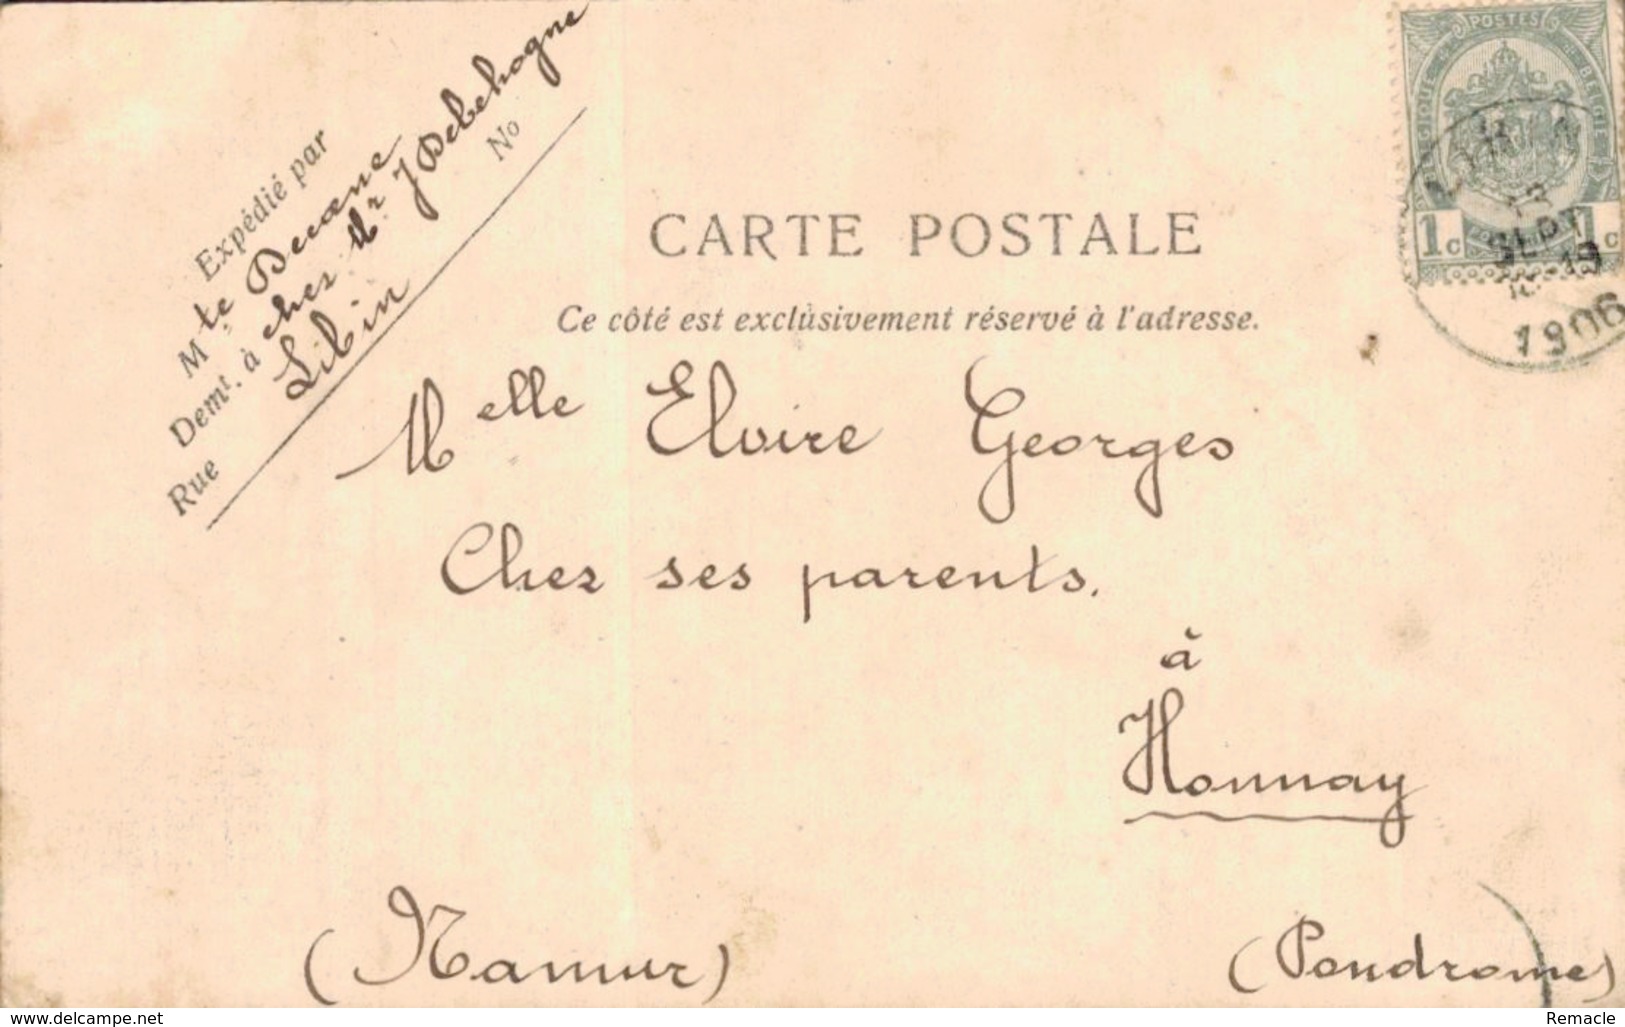 Expédié par
Mte Decaene
Demt. à chez Mr J Debehogne
Libin
Rue No
POSTES
BELGIQUE BELGIË
1c 1c
SEPT
1906
CARTE POSTALE
Ce côté est exclusivement réservé à l'adresse.
Melle Elvire Georges
Chez ses parents.
à
Honnay
(Namur) (Pondrome)
www.delcampe.net Remacle